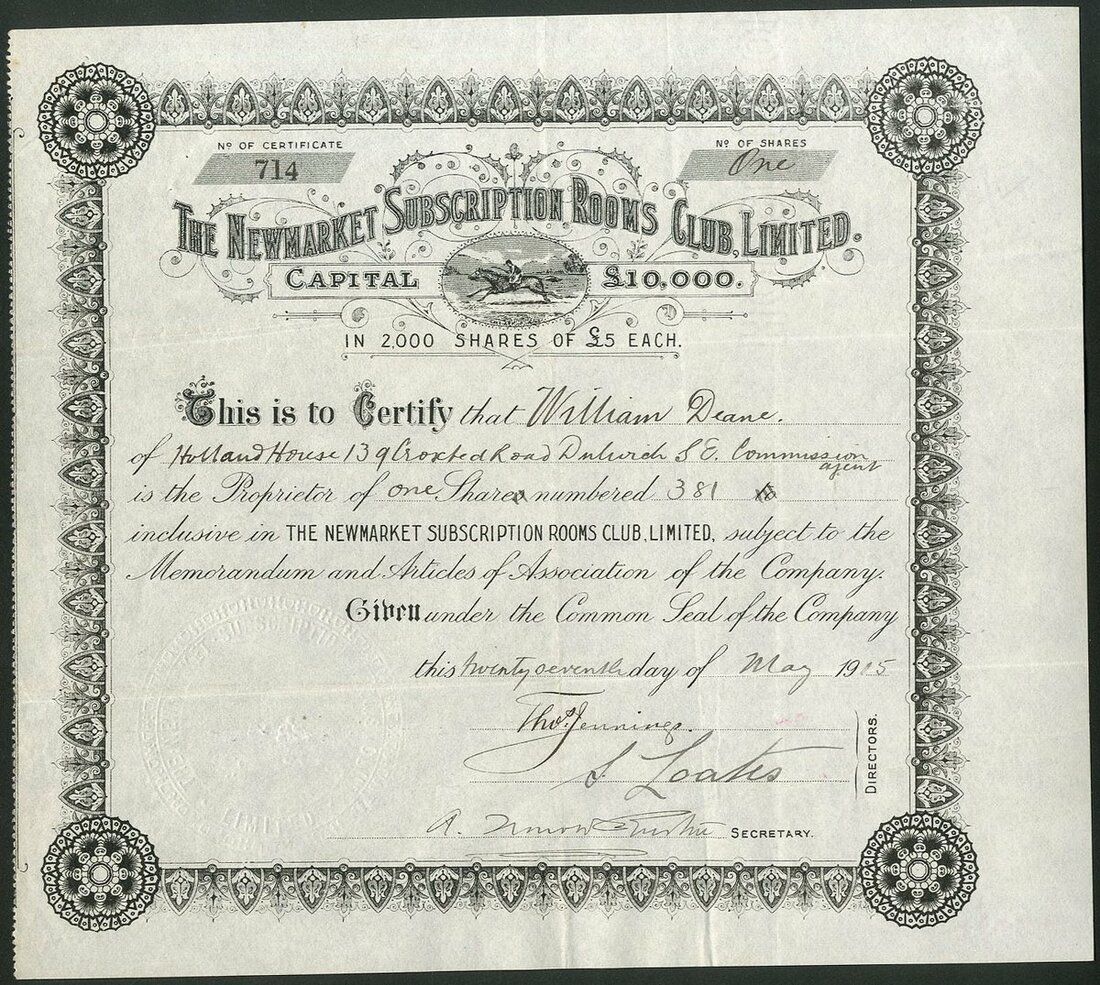 Nº OF CERTIFICATE
714
Nº OF SHARES
One
THE NEWMARKET SUBSCRIPTION ROOMS CLUB, LIMITED.
CAPITAL £10,000.
IN 2,000 SHARES OF £5 EACH.
This is to Certify that William Deane.
of Holland House 139 Croxted Road Dulwich S E. Commission agent
is the Proprietor of one Share numbered 381
inclusive in THE NEWMARKET SUBSCRIPTION ROOMS CLUB, LIMITED, subject to the
Memorandum and Articles of Association of the Company.
Given under the Common Seal of the Company
this twenty seventh day of May 1915
Thos. Jennings.
S. Loates
DIRECTORS.
A. SECRETARY.
LIMITED